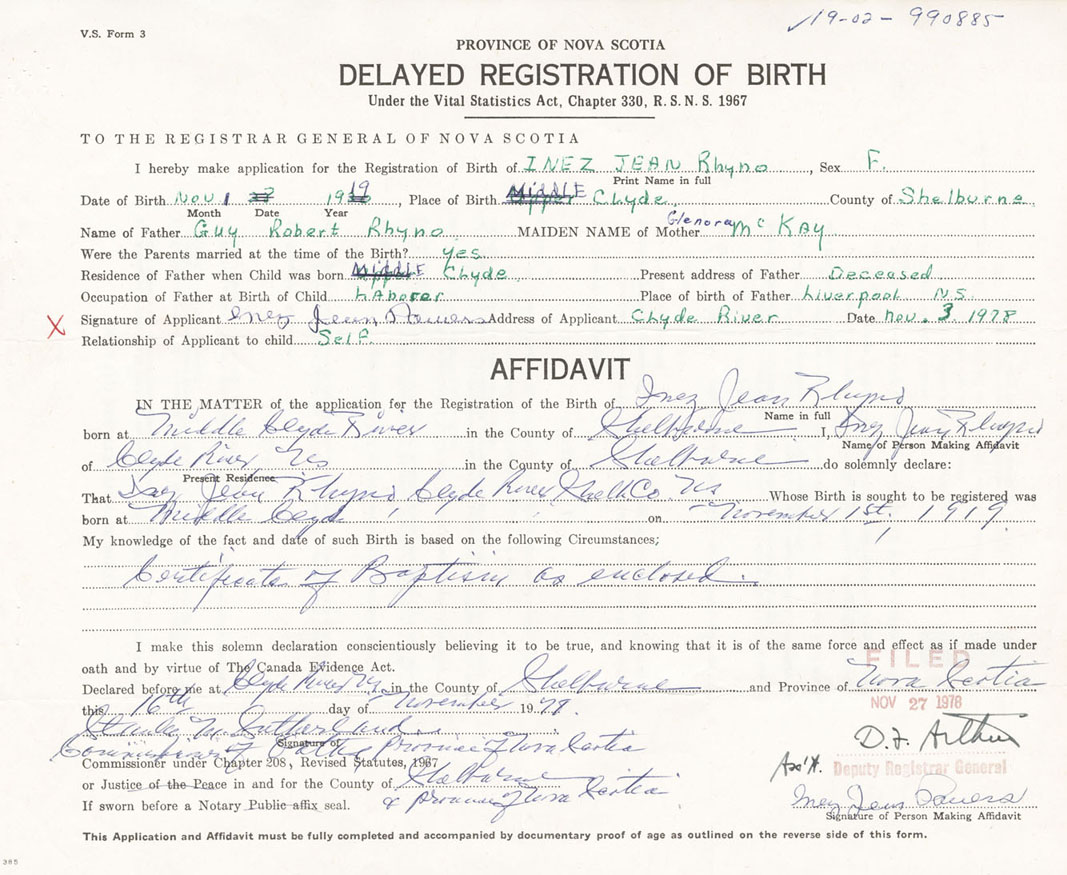 V.S. Form 3
19-02-990885
PROVINCE OF NOVA SCOTIA
DELAYED REGISTRATION OF BIRTH
Under the Vital Statistics Act, Chapter 330, R.S.N.S. 1967
TO THE REGISTRAR GENERAL OF NOVA SCOTIA
I hereby make application for the Registration of Birth of INEZ JEAN Rhyno, Sex F.
Print Name in full
Date of Birth Nov 1 1919, Place of Birth MIDDLE Clyde, County of Shelburne
Month Date Year
Name of Father Guy Robert Rhyno MAIDEN NAME of Mother Glenora McKay
Were the Parents married at the time of the Birth? yes.
Residence of Father when Child was born MIDDLE Clyde Present address of Father Deceased
Occupation of Father at Birth of Child LAborer Place of birth of Father Liverpool NS.
X Signature of Applicant Inez Jean Powers Address of Applicant Clyde River Date Nov. 3 1978
Relationship of Applicant to child Self.
AFFIDAVIT
IN THE MATTER of the application for the Registration of the Birth of Inez Jean Rhyno
Name in full
born at Middle Clyde River in the County of Shelburne I, Inez Jean Rhyno
Name of Person Making Affidavit
of Clyde River, NS in the County of Shelburne do solemnly declare:
Present Residence
That Inez Jean Rhyno, Clyde River Shelb Co. NS Whose Birth is sought to be registered was
born at Middle Clyde on November 1st, 1919
My knowledge of the fact and date of such Birth is based on the following Circumstances;
Certificate of Baptism as enclosed.
I make this solemn declaration conscientiously believing it to be true, and knowing that it is of the same force and effect as if made under
oath and by virtue of The Canada Evidence Act.
FILED
Declared before me at Clyde River NS, in the County of Shelburne and Province of Nova Scotia
this 16th day of November 1979.
NOV 27 1978
Sutherland
D.F. Arthur
Signature of
Commissioner of Oaths Province of Nova Scotia
Commissioner under Chapter 208, Revised Statutes, 1967
Ass't. Deputy Registrar General
or Justice of the Peace in and for the County of Shelburne
& Province of Nova Scotia
If sworn before a Notary Public affix seal.
Inez Jean Powers
Signature of Person Making Affidavit
This Application and Affidavit must be fully completed and accompanied by documentary proof of age as outlined on the reverse side of this form.
385